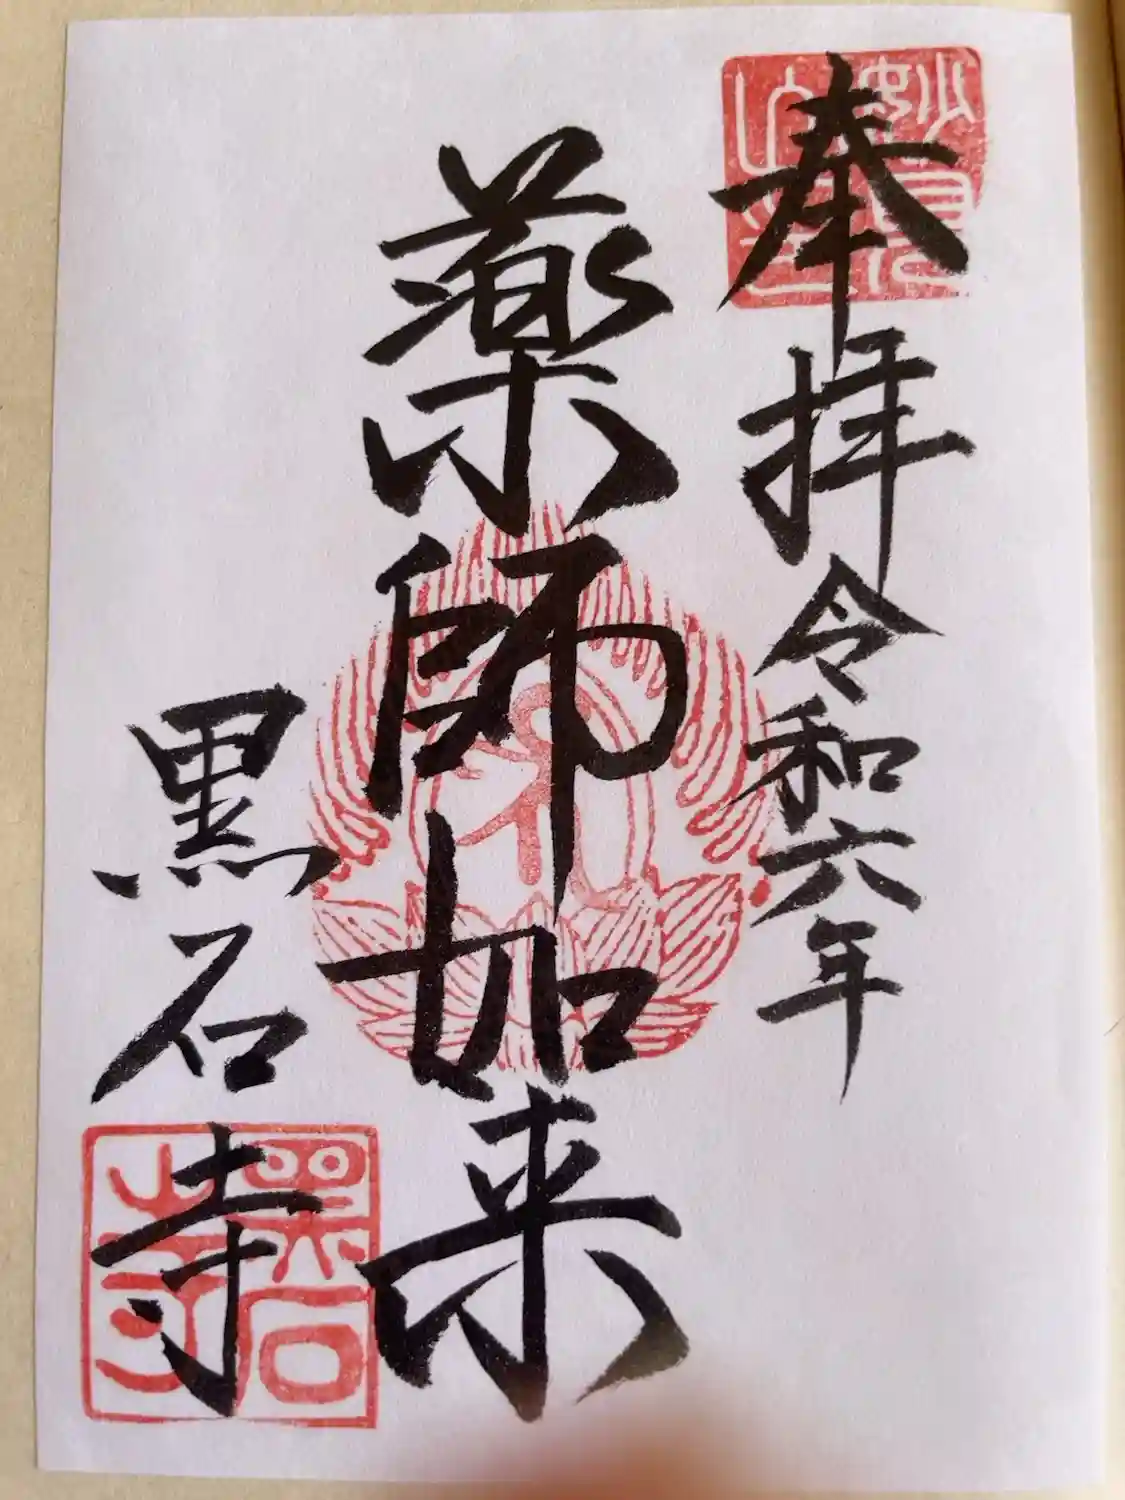 奉拝令和六年
薬師如来
黒石寺
妙見山
黒石寺